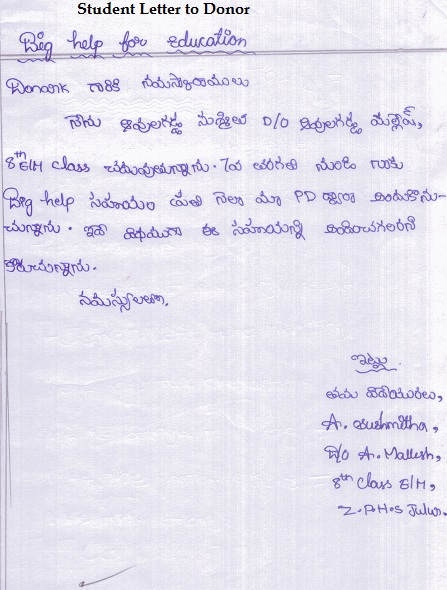 Student Letter to Donor
Big help for Education
Donark గారికి నమస్కారాములు
నేను D/O మల్లేష్,
8th E/M class చదువుతున్నాను. 7వ తరగతి నుండి నాకు
Big help సహాయం ప్రతి నెలా మా PD ద్వారా అందుకొను-
చున్నాను. ఇదే విధముగా ఈ సహాయాన్ని అందించగలరని
కోరుచున్నాను.
ఇట్లు
తమ విధేయురాలు,
A. Sushmitha,
D/O A. Mallesh,
8th Class E/M,
Z.P.H.S